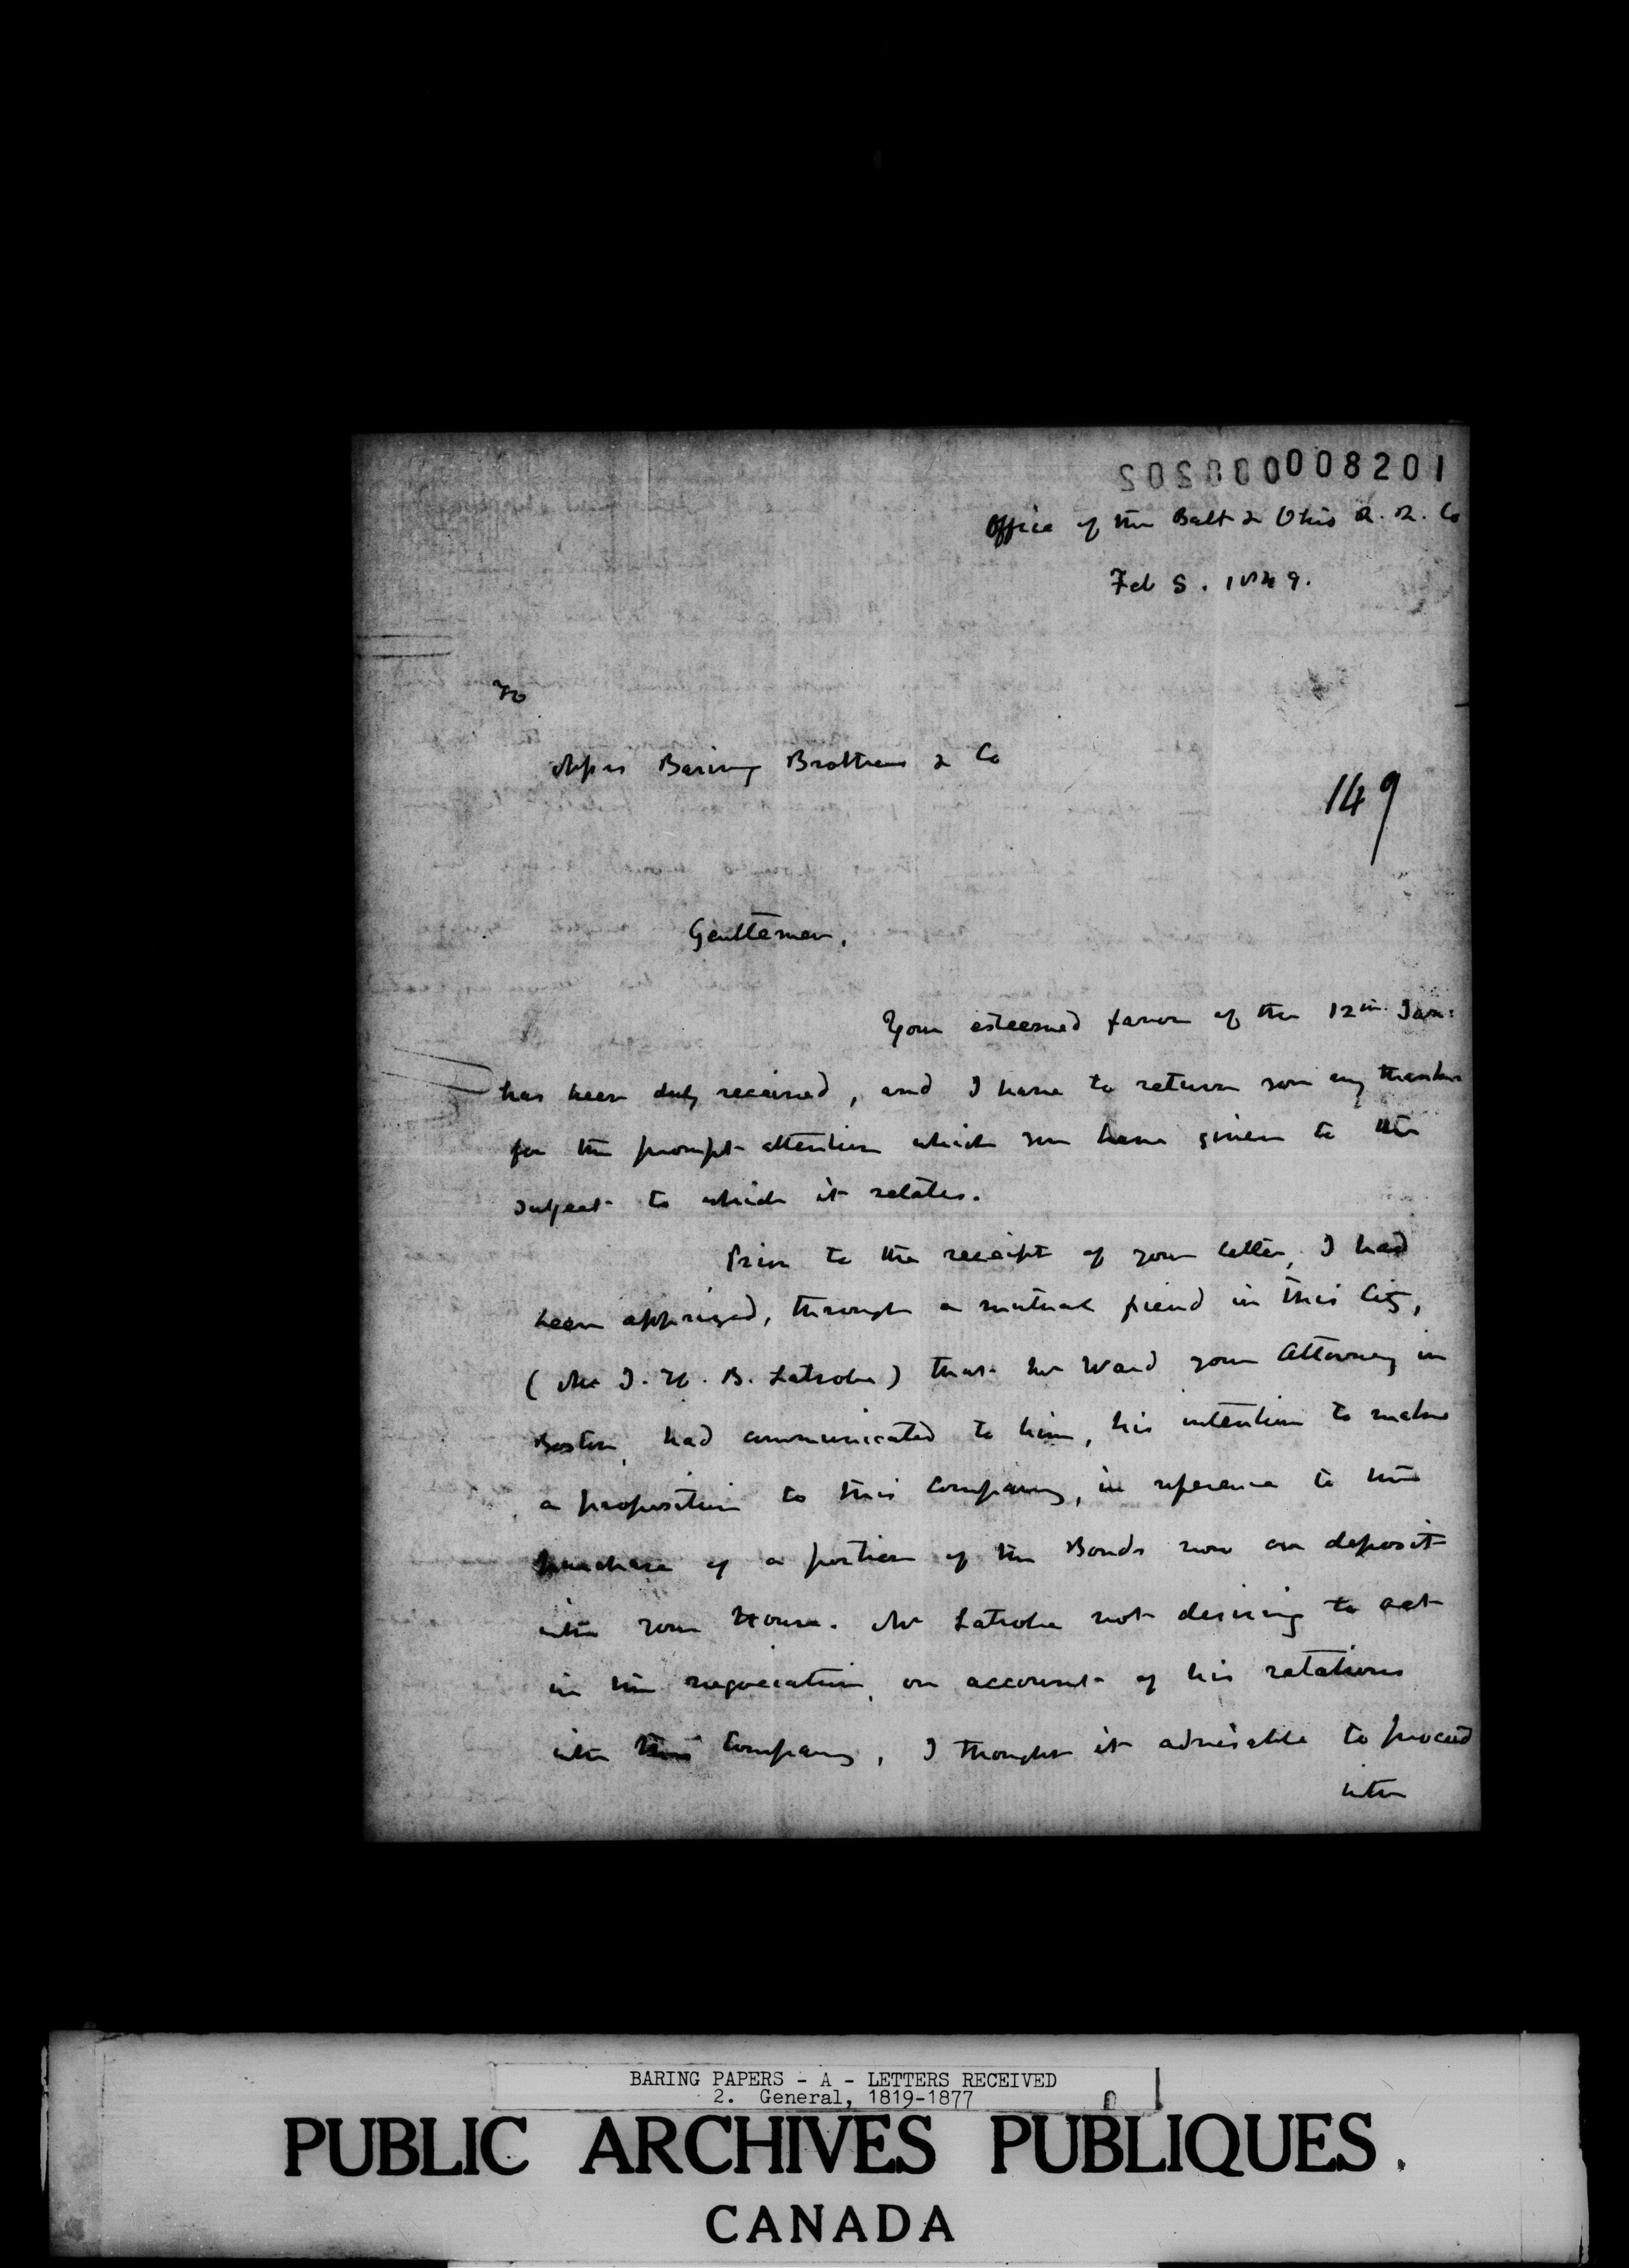 008201
Office of the Balt & Ohio R. R. Co
Feb 5. 1849.
To
Messrs Baring Brothers & Co
149
Gentlemen,
Your esteemed favor of the 12th Jan:
has been duly received, and I have to return you my thanks
for the prompt attention which you have given to the
subject to which it relates.
Prior to the receipt of your letter, I had
been apprized, through a mutual friend in this City,
(Mr J. H. B. Latrobe) that Mr Ward your Attorney in
Boston, had communicated to him, his intention to make
a proposition to this Company, in reference to the
purchase of a portion of the Bonds now on deposit
with your House. Mr Latrobe not desiring to act
in the negociation, on account of his relations
with this Company, I thought it advisable to proceed
with
BARING PAPERS - A - LETTERS RECEIVED
2. General, 1819-1877
PUBLIC ARCHIVES PUBLIQUES
CANADA